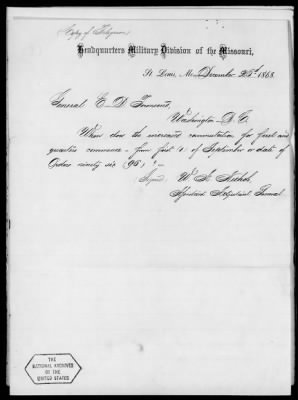 Copy of Telegram
Headquarters Military Division of the Missouri,
St. Louis, Mo. December 23d 1868.
General E. D. Townsend,
Washington D. C.
When does the increased commutation for fuel and
quarters commence - from first (1) of September or date of
Orders ninety six (96) ? -
Signed W. A. Nichols,
Assistant Adjutant General
THE
NATIONAL ARCHIVES
OF THE
UNITED STATES